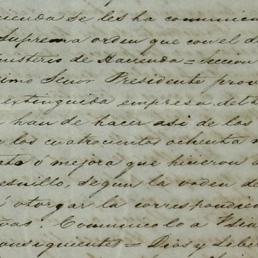 cienda se les ha comunica
Suprema orden que con el d
nisterio de Hacienda = Seccion
simo Señor Presidente prov
extinguida empresa del
han de hacer asi de los
los cuatrocientos ochenta
o mejora que hicieron a
esnillo, segun la orden de
otorgar la correspondien
Comunicolo a
onsiguientes = Dios y Libe